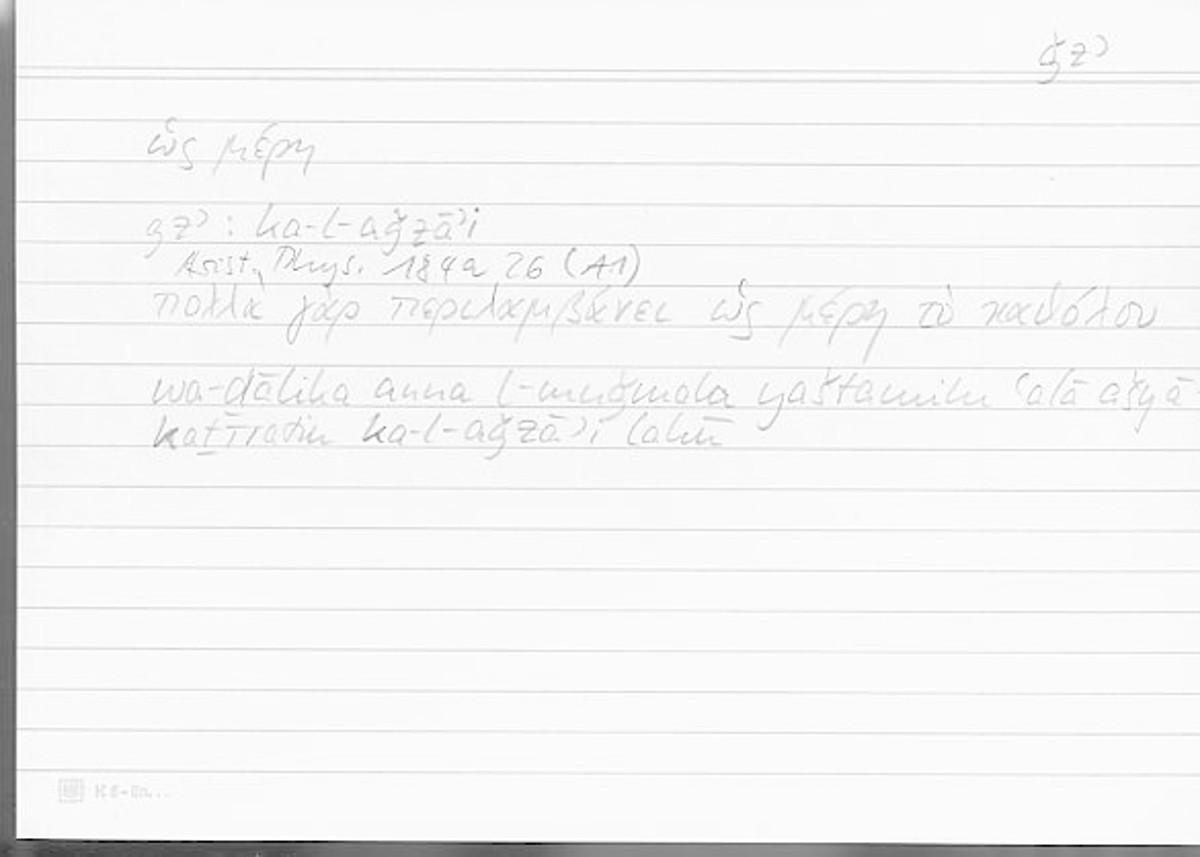 ǧzʾ
ὡς μέρη
gzʾ : ka-l-aǧzāʾi
Arist., Phys. 184a 26 (A1)
πολλὰ γὰρ περιλαμβάνει ὡς μέρη τὸ καθόλου
wa-dālika anna l-muǧmala yaštamilu ʿalā ašyā
kaṯīratin ka-l-aǧzāʾi lahū